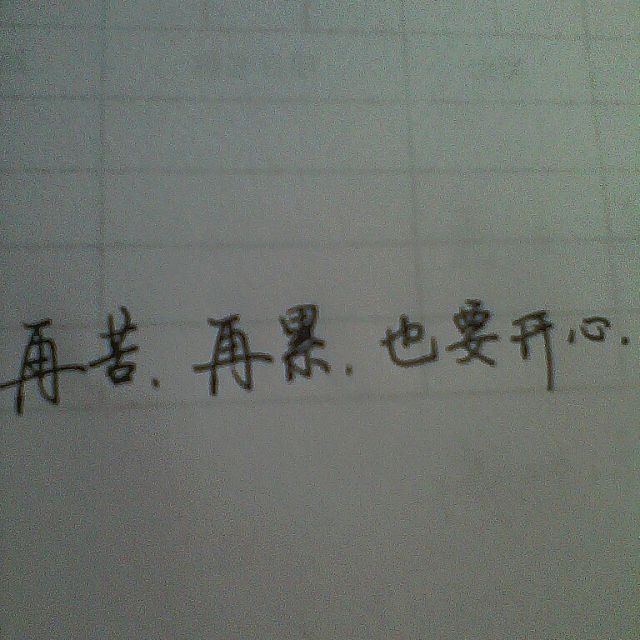 再苦、再累、也要开心.